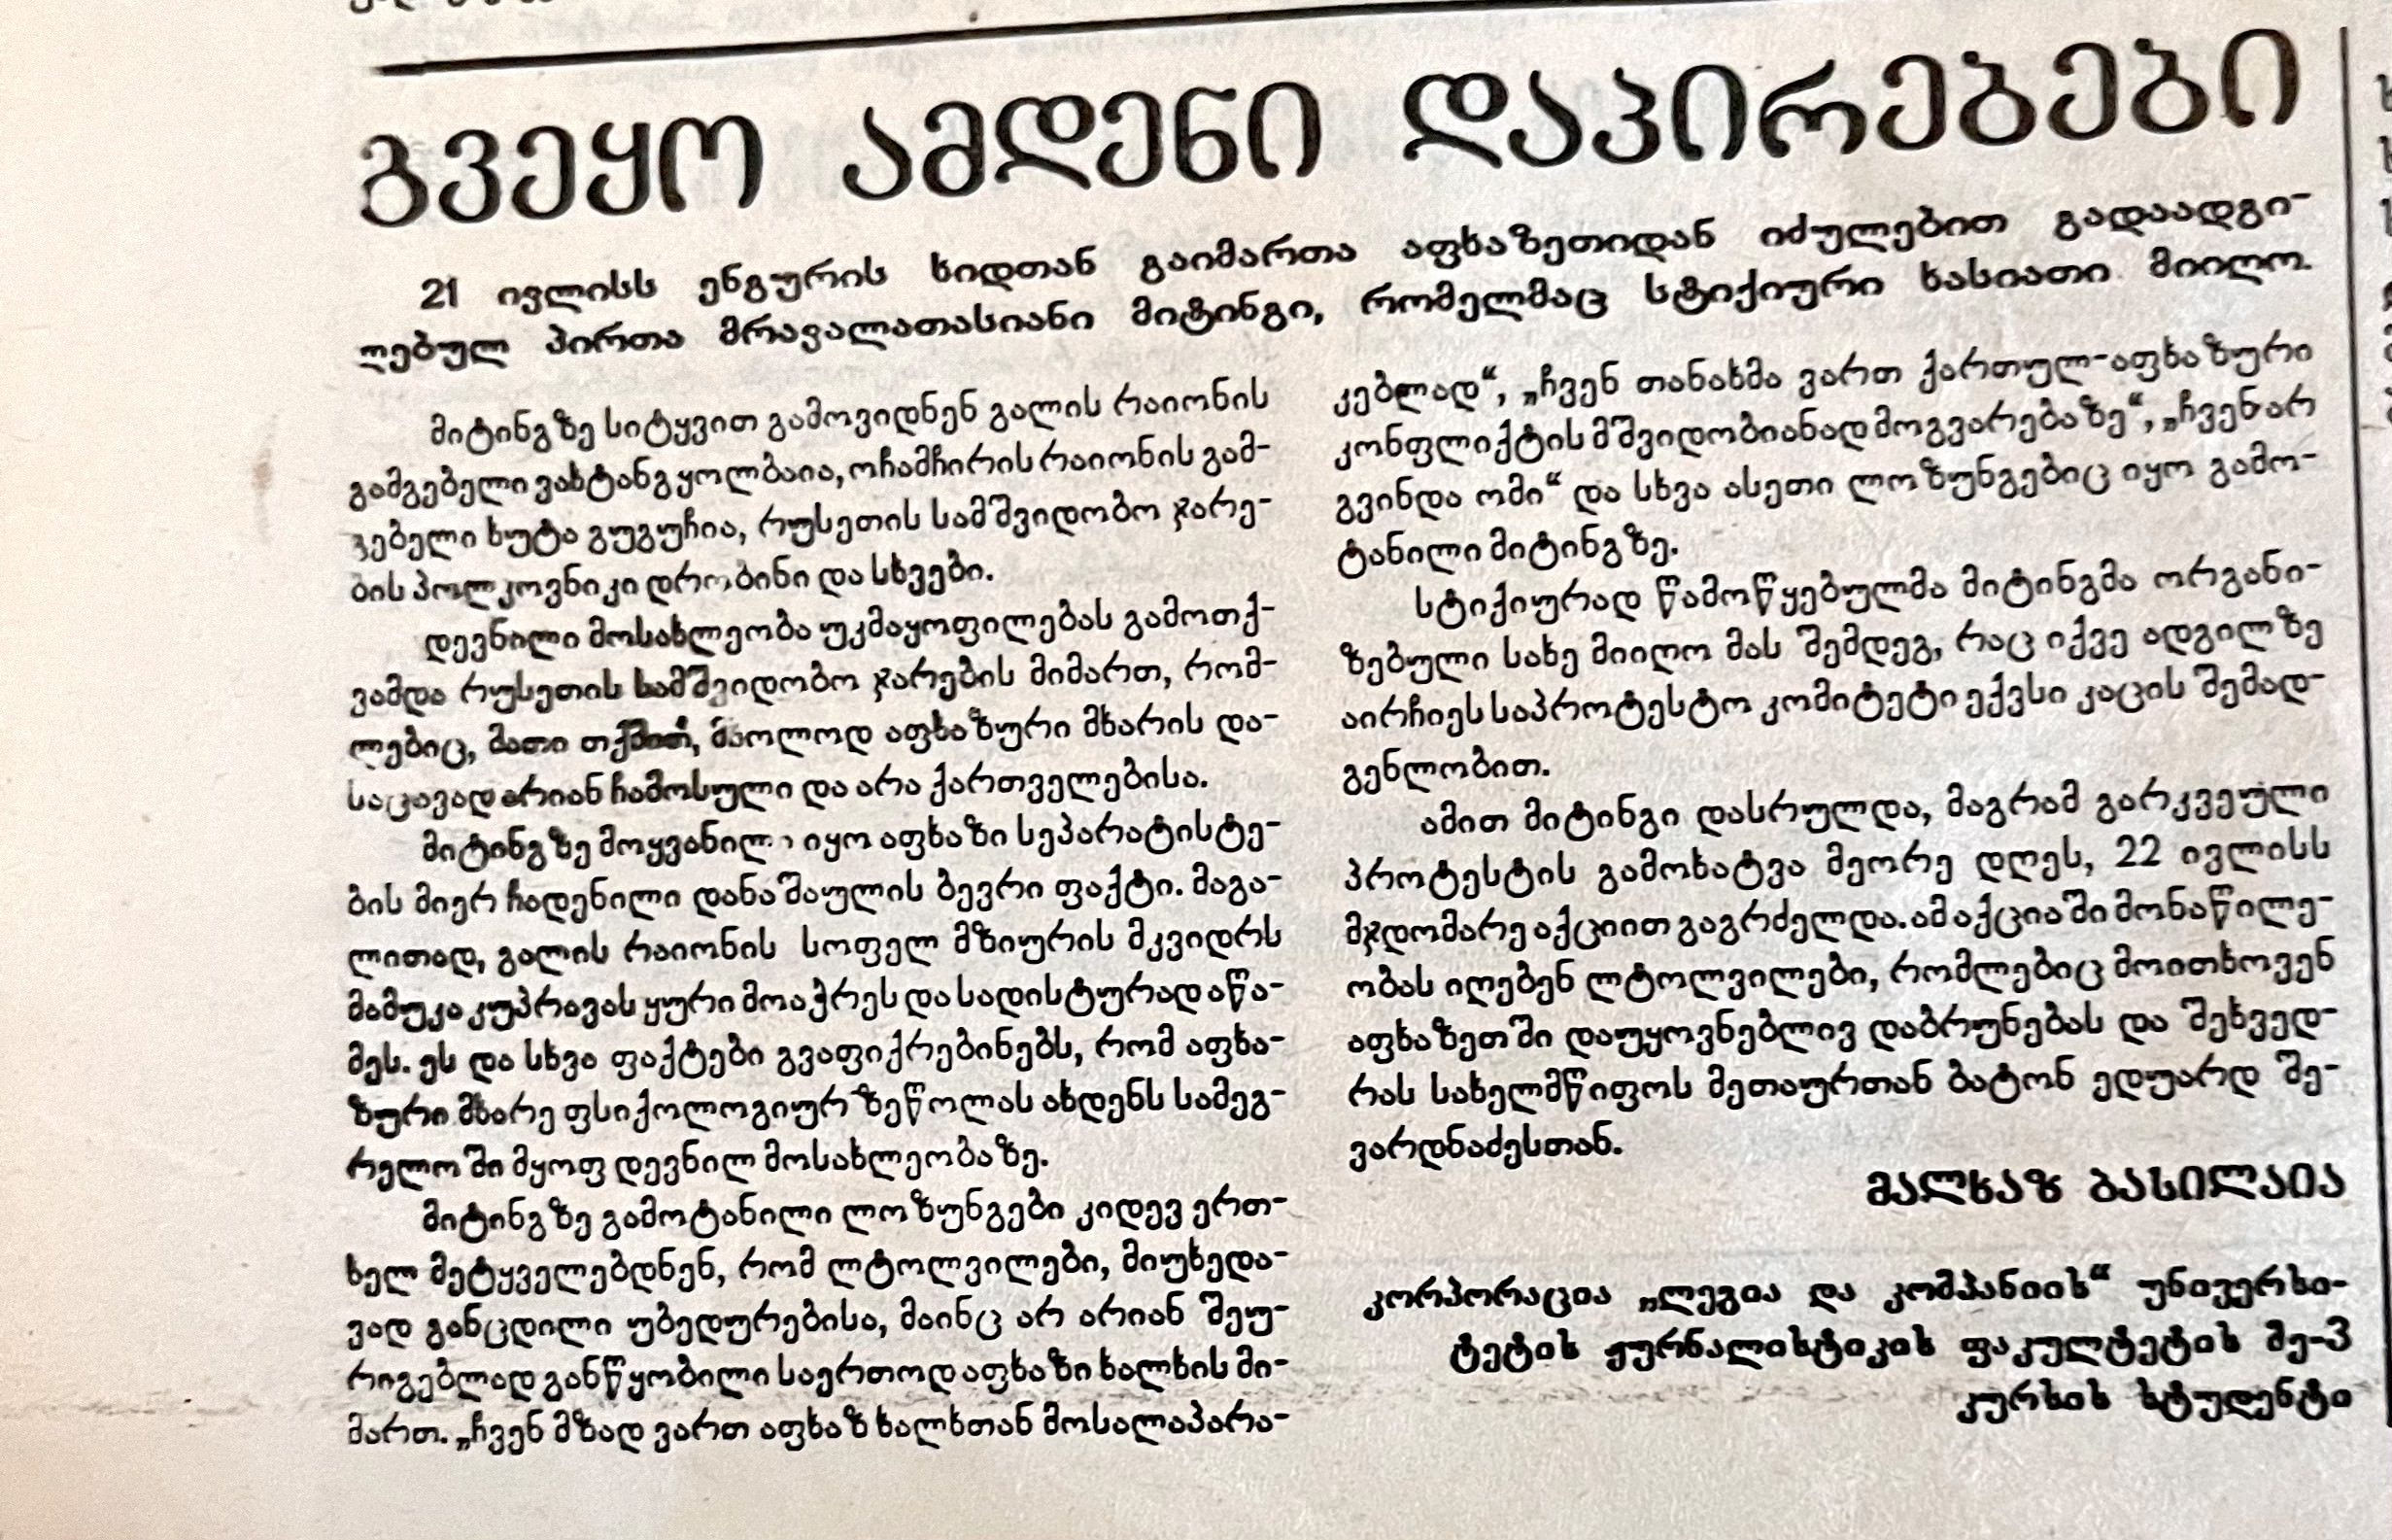 გვეყო ამდენი დაპირებები
21 ივლისს ენგურის ხიდთან გაიმართა აფხაზეთიდან იძულებით გადაადგი-
ლებულ პირთა მრავალათასიანი მიტინგი, რომელმაც სტიქიური ხასიათი მიიღო.
მიტინგზე სიტყვით გამოვიდნენ გალის რაიონის
გამგებელი ვახტანგ ყოლბაია, ოჩამჩირის რაიონის გამ-
გებელი ხუტა გუგუჩია, რუსეთის სამშვიდობო ჯარე-
ბის პოლკოვნიკი დრობინი და სხვები.
დევნილი მოსახლეობა უკმაყოფილებას გამოთქ-
ვამდა რუსეთის სამშვიდობო ჯარების მიმართ, რომ-
ლებიც, მათი თქმით, მხოლოდ აფხაზური მხარის და-
საცავად არიან ჩამოსული და არა ქართველებისა.
მიტინგზე მოყვანილი იყო აფხაზი სეპარატისტე-
ბის მიერ ჩადენილი დანაშაულის ბევრი ფაქტი. მაგა-
ლითად, გალის რაიონის სოფელ მზიურის მკვიდრს
მამუკა კუპრავას ყური მოაჭრეს და სადისტურად აწა-
მეს. ეს და სხვა ფაქტები გვაფიქრებინებს, რომ აფხა-
ზური მხარე ფსიქოლოგიურ ზეწოლას ახდენს სამეგ-
რელოში მყოფ დევნილ მოსახლეობაზე.
მიტინგზე გამოტანილი ლოზუნგები კიდევ ერთ-
ხელ მეტყველებდნენ, რომ ლტოლვილები, მიუხედა-
ვად განცდილი უბედურებისა, მაინც არ არიან შეუ-
რიგებლად განწყობილი საერთოდ აფხაზი ხალხის მი-
მართ. „ჩვენ მზად ვართ აფხაზ ხალხთან მოსალაპარა-
კებლად“, „ჩვენ თანახმა ვართ ქართულ-აფხაზური
კონფლიქტის მშვიდობიანად მოგვარებაზე“, „ჩვენ არ
გვინდა ომი“ და სხვა ასეთი ლოზუნგებიც იყო გამო-
ტანილი მიტინგზე.
სტიქიურად წამოწყებულმა მიტინგმა ორგანი-
ზებული სახე მიიღო მას შემდეგ, რაც იქვე ადგილზე
აირჩიეს საპროტესტო კომიტეტი ექვსი კაცის შემად-
გენლობით.
ამით მიტინგი დასრულდა, მაგრამ გარკვეული
პროტესტის გამოხატვა მეორე დღეს, 22 ივლისს
მჯდომარე აქციით გაგრძელდა. ამ აქციაში მონაწილე-
ობას იღებენ ლტოლვილები, რომლებიც მოითხოვენ
აფხაზეთში დაუყოვნებლივ დაბრუნებას და შეხვედ-
რას სახელმწიფოს მეთაურთან ბატონ ედუარდ შე-
ვარდნაძესთან.
მალხაზ ბასილაია
კორპორაცია „ლეგია და კომპანიის“ უნივერსი-
ტეტის ჟურნალისტიკის ფაკულტეტის მე-3
კურსის სტუდენტი